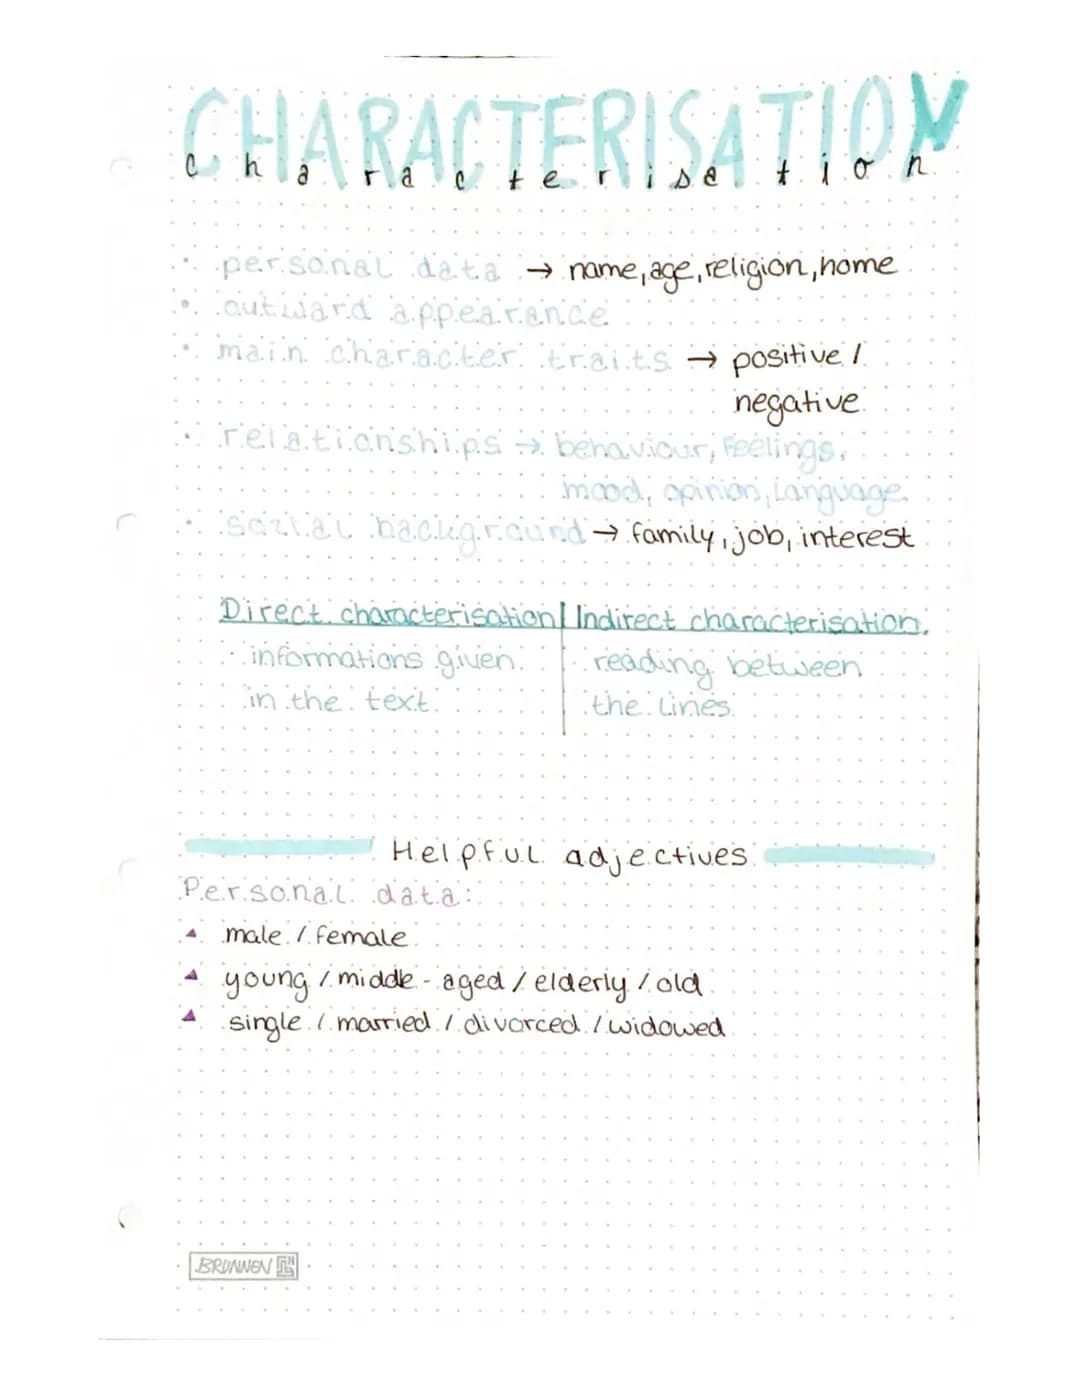 CHARACTERISATION
characterisation
• personal data → name, age, religion, home
• outward appearance
• main character traits → positive /
negative
• relationships → behaviour, feelings,
mood, opinion, language
• social background → family, job, interest
Direct characterisation | Indirect characterisation
· informations given | reading between
in the text | the lines
Helpful adjectives
Personal data:
▲ male / female
▲ young / middle-aged / elderly / old
▲ single / married / divorced / widowed
BRUNNEN